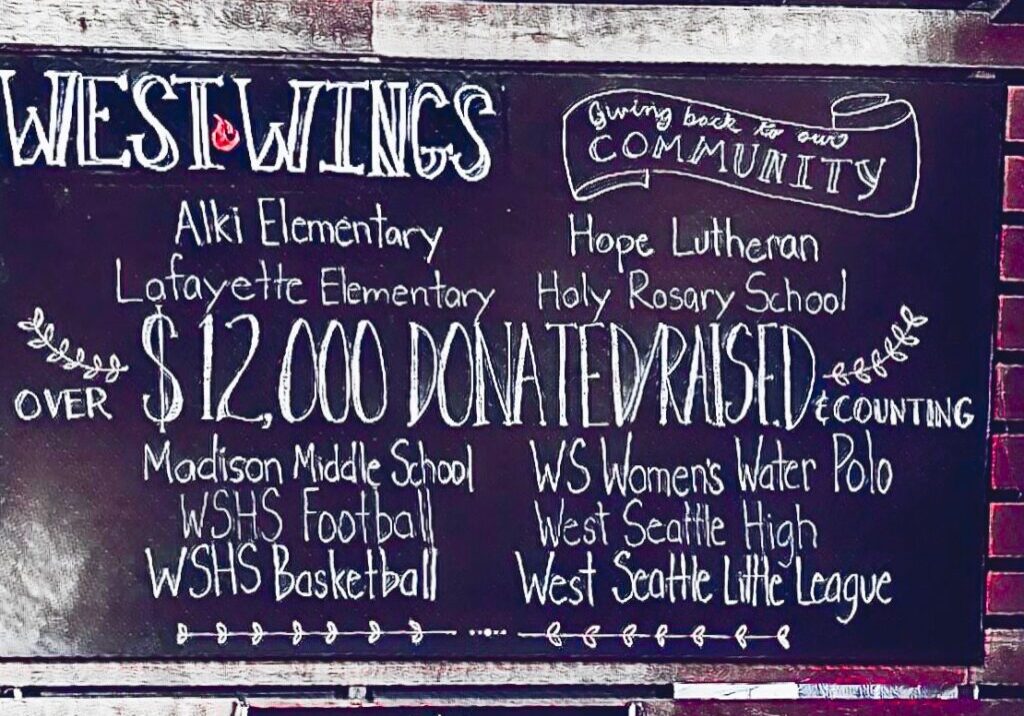 WEST WINGS
Giving back to our
COMMUNITY
Alki Elementary
Hope Lutheran
Lafayette Elementary
Holy Rosary School
OVER $12,000 DONATED/RAISED & COUNTING
Madison Middle School
WS Women's Water Polo
WSHS Football
West Seattle High
WSHS Basketball
West Seattle Little League